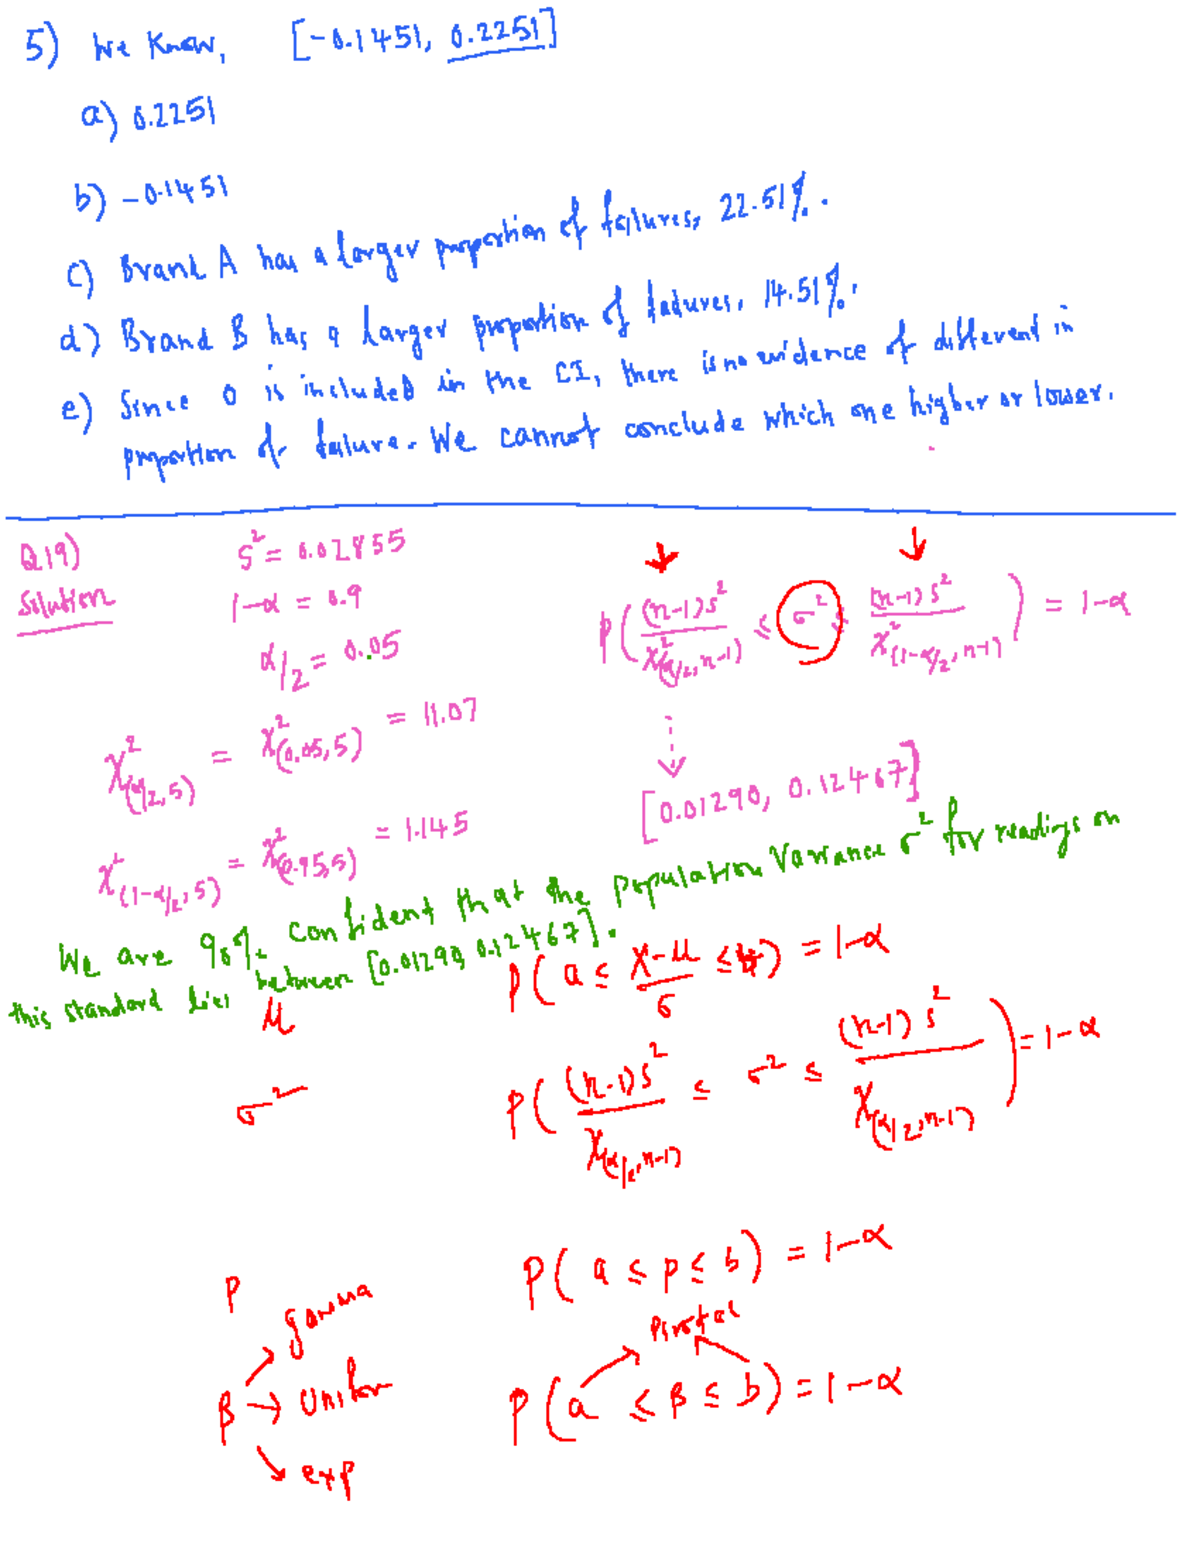 5) We Know, [-0.1451, 0.2251]
a) 0.2251
b) -0.1451
c) Brand A has a larger proportion of failures, 22.51%.
d) Brand B has a larger proportion of failures, 14.51%.
e) Since 0 is included in the CI, there is no evidence of different in
proportion of failure. We cannot conclude which one higher or lower.
Q19)
Solution
S² = 0.02855
1-α = 0.9
α/2 = 0.05
P( (n-1)s² / χ²(α/2, n-1) ≤ σ² ≤ (n-1)s² / χ²(1-α/2, n-1) ) = 1-α
χ²(α/2,5) = χ²(0.05,5) = 11.07
χ²(1-α/2,5) = χ²(0.95,5) = 1.145
[0.01290, 0.12467]
We are 90% confident that the population Variance σ² for readings on
this standard lies between [0.01290, 0.12467].
μ
P( a ≤ X-μ / σ ≤ b ) = 1-α
σ²
P( (n-1)s² / χ(α/2, n-1) ≤ σ² ≤ (n-1)s² / χ(α/2, n-1) ) = 1-α
P
P( a ≤ p ≤ b ) = 1-α
gamma
Pivotal
β → Unifor
P( a ≤ β ≤ b ) = 1-α
exp